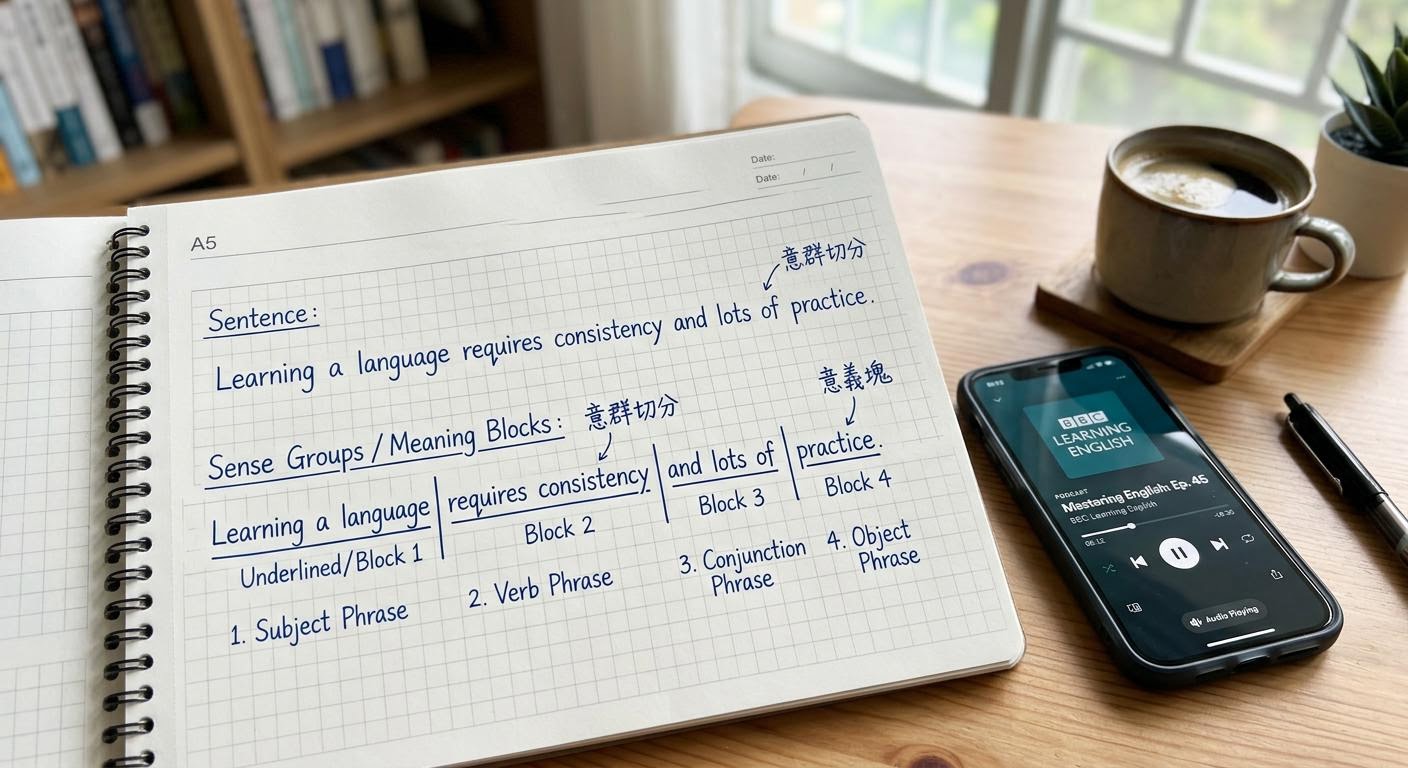 Date:
Date: / /
A5
意群切分
Sentence:
Learning a language requires consistency and lots of practice.
意義塊
Sense Groups / Meaning Blocks: 意群切分
Learning a language | requires consistency | and lots of | practice.
Underlined/Block 1 Block 2 Block 3 Block 4
1. Subject Phrase 2. Verb Phrase 3. Conjunction Phrase 4. Object Phrase
BBC
LEARNING
ENGLISH
PODCAST
Mastering English Ep. 45
BBC Learning English
Audio Playing